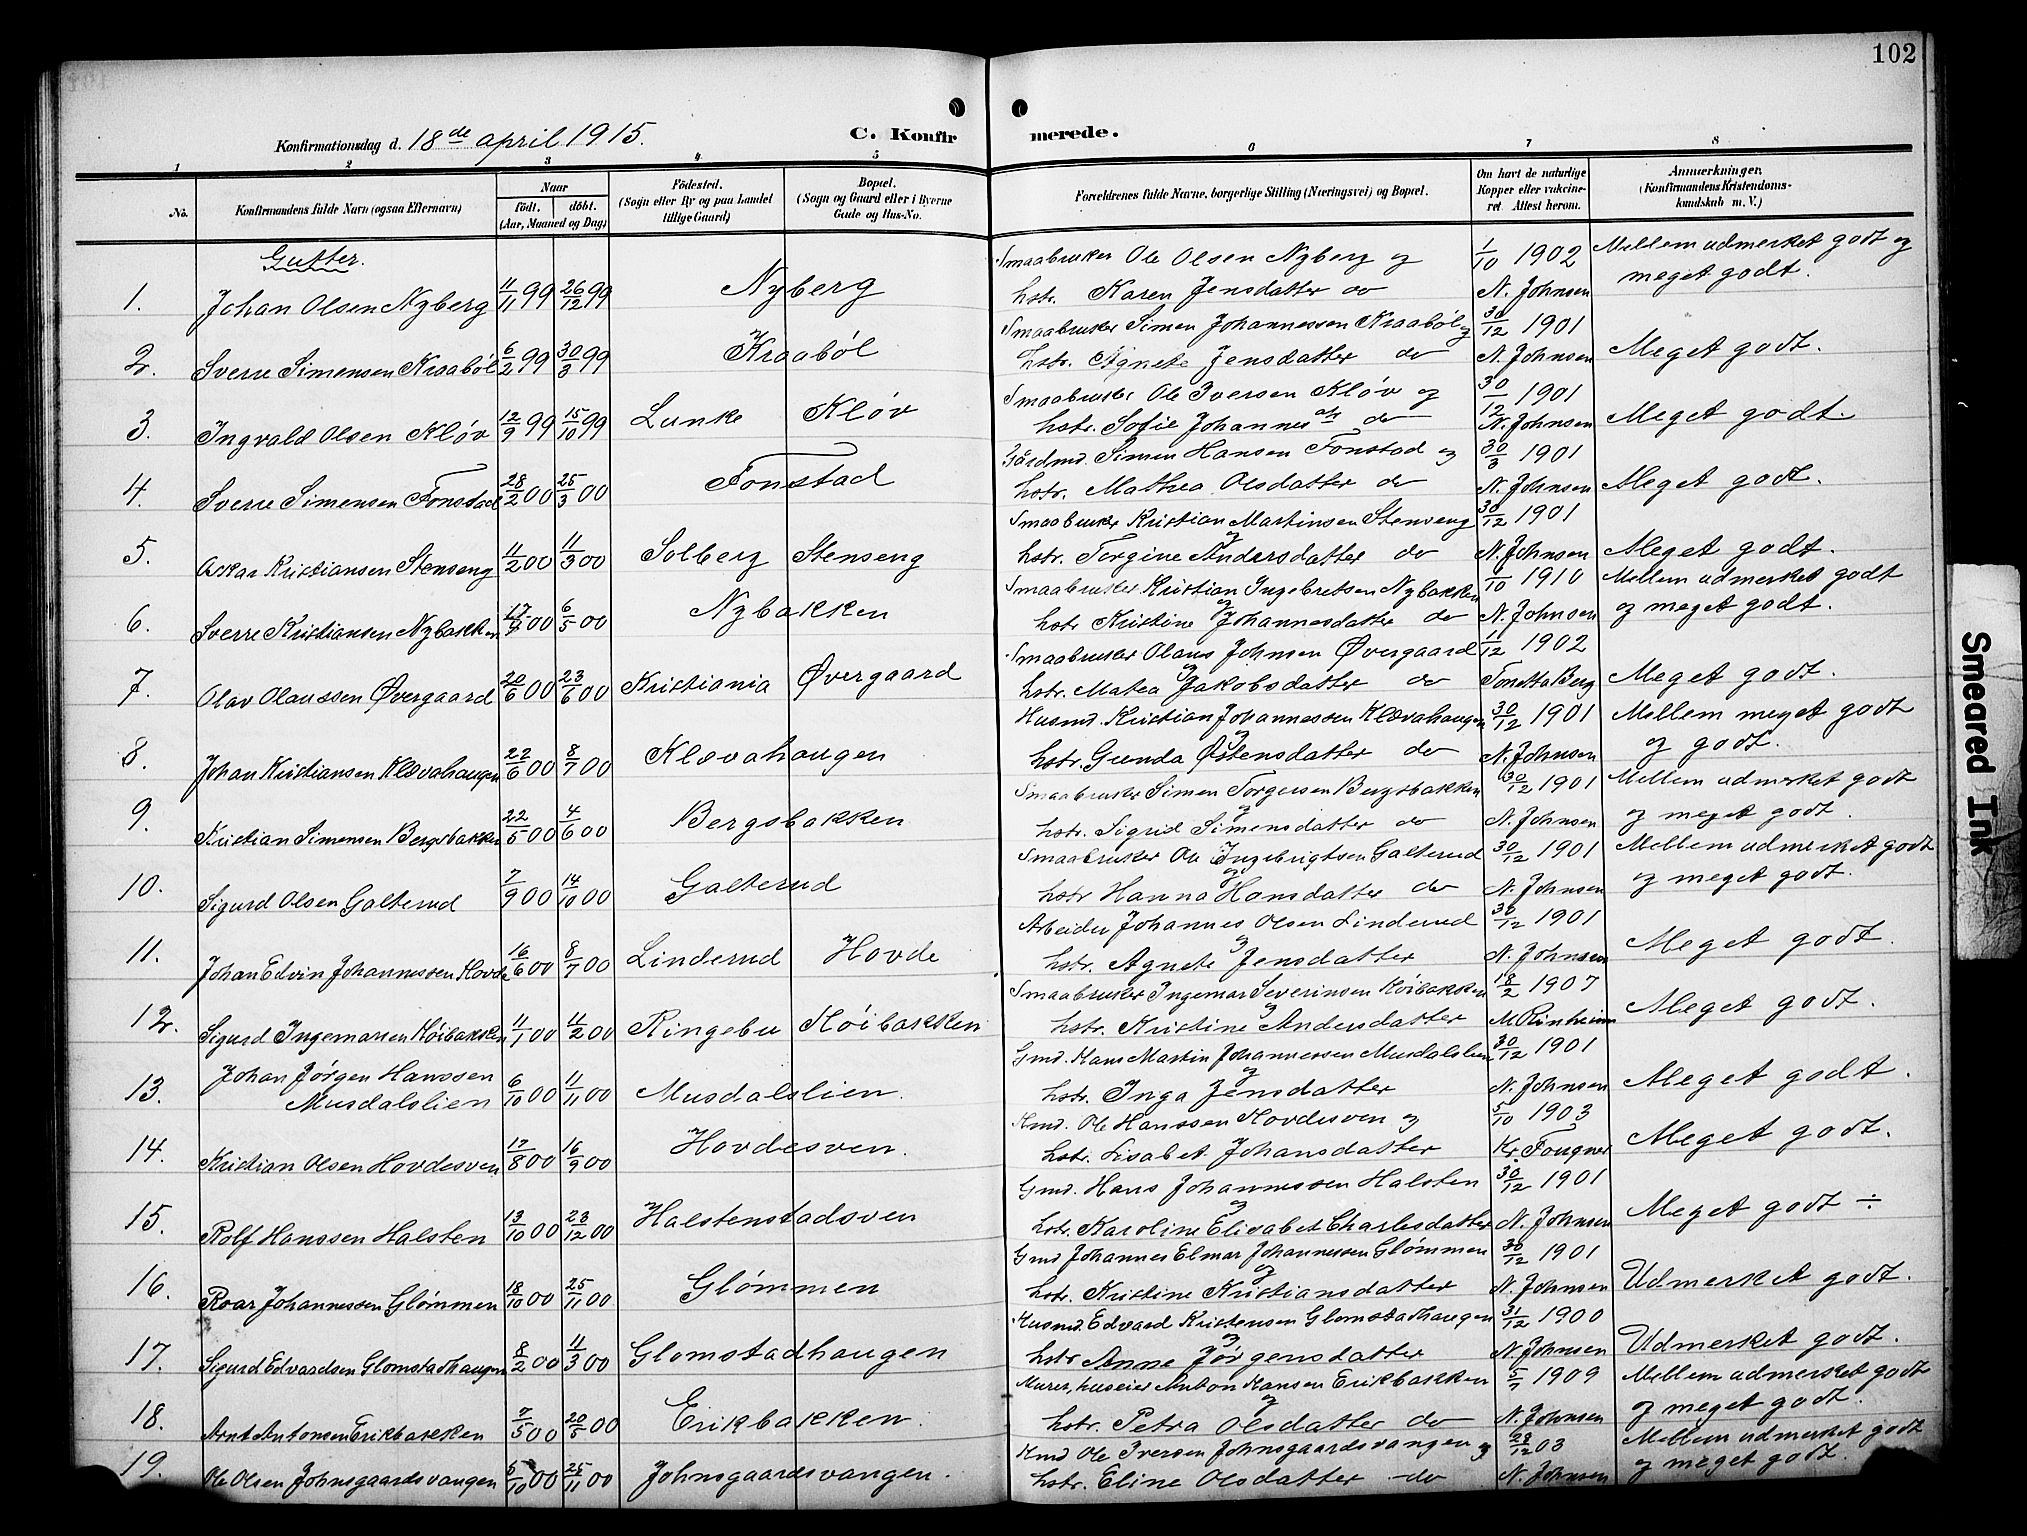 102
Konfirmationsdag d. 18de april 1915. C. Konfirmerede.
1 2 3 4 5 6 7 8
No. Konfirmandens fulde Navn (ogsaa Efternavn) Naar født. døbt. (Aar, Maaned og Dag) Fødested. (Sogn eller By og paa Landet tillige Gaard) Bopæl. (Sogn og Gaard eller i Byerne Gade og Hus-No. Forældrenes fulde Navne, borgerlige Stilling (Næringsvei) og Bopæl. Om havt de naturlige Kopper eller vakcineret. Attest herom. Anmerkninger. (Konfirmandens Kristendomskundskab m. V.)
Gutter.
1. Johan Olsen Nyberg 11/11 99 26/12 99 Nyberg Smaabruker Ole Olsen Nyberg og 1/10 1902 Mellem udmerket godt og
hstr. Karen Jensdatter av N. Johnsen meget godt.
2. Sverre Simensen Kraabøl 6/2 99 30/3 99 Kraabøl Smaabruker Simen Johannessen Kraabøl og 30/12 1901
hstr. Agnete Jensdatter do N. Johnsen Meget godt.
3. Ingvald Olsen Kløv 12/9 99 15/10 99 Lunke Kløv Smaabruker Ole Iversen Kløv og 30/12 1901
hstr. Sofie Johannesdtr do N. Johnsen Meget godt.
4. Sverre Simensen Fonstad 28/2 00 25/3 00 Fonstad Gårdmd. Simen Hansen Fonstad og 30/3 1901
hstr. Mathea Olsdatter do N. Johnsen Meget godt.
5. Oskar Kristiansen Stenseng 11/2 00 11/3 00 Solberg Stenseng Smaabruker Kristian Martinsen Stenseng og 30/12 1901
hstr. Torgine Andersdatter do N. Johnsen Meget godt.
6. Sverre Kristiansen Nybakken 6/5 00 Nybakken Smaabruker Kristian Ingebretsen Nybakken og 1910 Mellem udmerket godt
hstr Kristine Johannesdatter do N. Johnsen og meget godt.
7. Olav Olaussen Øvergaard 20/6 00 23/6 00 Kristiania Øvergaard Smaabruker Olaus Johnsen Øvergaard og 1902
hstr. Matea Jakobsdatter do Tonetta Berg Meget godt.
8. Johan Kristiansen Klævahaugen 22/6 00 8/7 00 Klævahaugen Husmd. Kristian Johannessen Klævahaugen og 30/12 1901 Mellem meget godt
hstr. Gunda Østensdatter do N. Johnsen og godt.
9. Kristian Simensen Bergsbakken 22/5 00 4/6 00 Bergsbakken Smaabruker Simen Torgersen Bergsbakken og 30/12 1901 Mellem udmerket godt
hstr. Sigrid Simensdatter do N. Johnsen og meget godt.
10. Sigurd Olsen Galterud 7/9 00 14/10 00 Galterud Smaabruker Ole Ingebrigtsen Galterud og 30/12 1901 Mellem udmerket godt
hstr Hanna Hansdatter do N. Johnsen og meget godt.
11. Johan Edvin Johannessen Hovde 16/6 00 8/7 00 Linderud Hovde Arbeider Johannes Olsen Linderud og 30/12 1901
hstr. Agnete Jensdatter N. Johnsen Meget godt.
12. Sigurd Ingemarsen Høibakken 11/1 00 11/2 00 Ringebu Høibakken Smaabruker Ingemar Severinsen Høibakken og 18/2 1907
hstr. Kristine Andersdatter M Rinheim Meget godt.
13. Johan Jørgen Hanssen Musdalslien 6/10 00 11/11 00 Musdalslien. Gmd. Hans Martin Johannessen Musdalslien og 30/12 1901
hstr. Inga Jensdatter N. Johnsen Meget godt.
14. Kristian Olsen Hovdesven 17/8 00 16/9 00 Hovdesven. Hmd. Ole Hanssen Hovdesven og 5/10 1903
hstr. Lisabet Johansdatter Kr. Fougner Meget godt.
15. Rolf Hanssen Halsten 13/10 00 23/12 00 Halstenstadsven Gmd. Hans Johannessen Halsten og 30/12 1901
hstr. Karoline Elisabet Charlesdatter N. Johnsen Meget godt ÷
16. Roar Johannessen Glømmen 18/10 00 25/11 00 Glømmen Gmd Johannes Elmar Johannessen Glømmen og 30/12 1901
hstr. Kristine Kristiansdatter N. Johnsen Udmerket godt.
17. Sigurd Edvardsen Glomstadhaugen 8/2 00 11/3 00 Glomstadhaugen Husmd. Edvard Kristensen Glomstadhaugen og 31/12 1900
hstr Anne Jørgensdatter N. Johnsen Udmerket godt.
18. Arnt Antonsen Erikbakken 7/5 00 20/5 00 Erikbakken. Murer, huseier Anton Hansen Erikbakken og 1909 Mellem udmerket godt
hstr. Petra Olsdatter do N. Johnsen og meget godt.
19. Ole Olsen Johnsgaardsvangen 5/10 00 25/11 00 Johnsgaardsvangen. Hmd Ole Iversen Johnsgaardsvangen og 28/12 03 Mellem udmerket godt
hstr. Eline Olsdatter do N. Johnsen og meget godt.
Smeared Ink